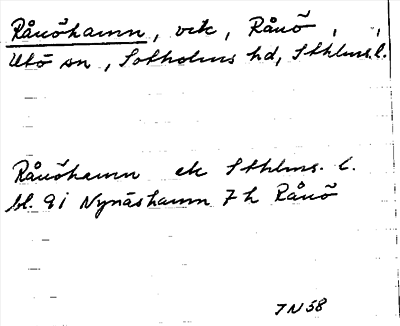 Rånöhamn, vik, Rånö,
Utö sn, Sotholms hd, Sthlms. l.
Rånöhamn ek Sthlms. l.
bl. 9 i Nynäshamn 7 h Rånö
7 N 58